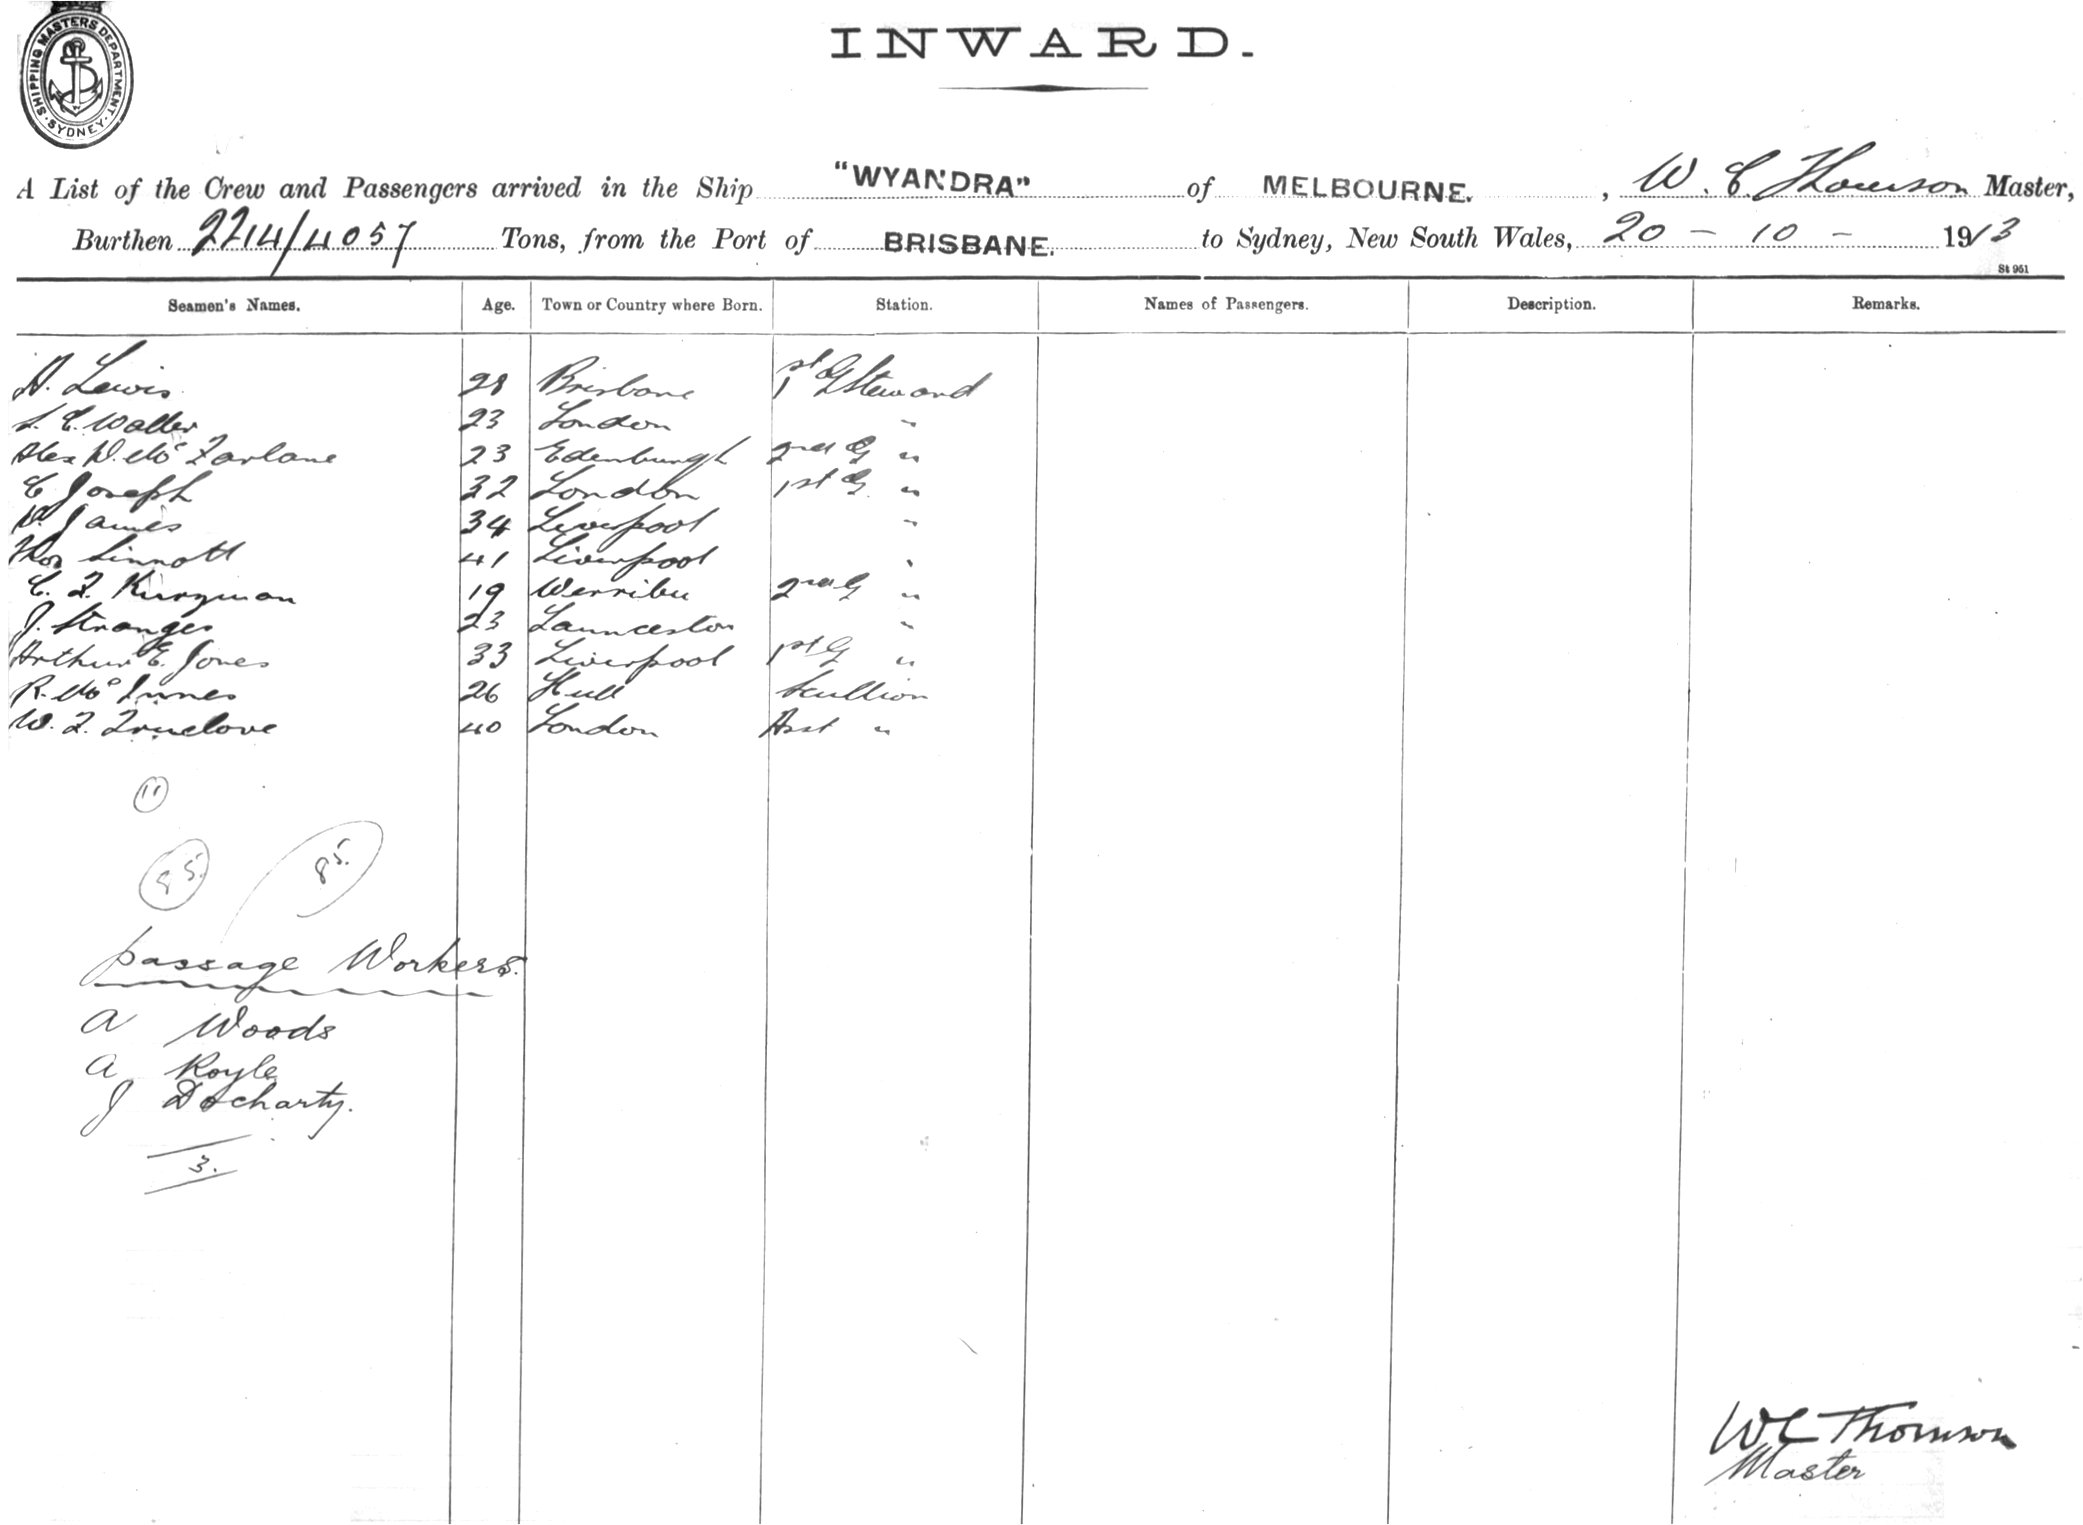 SHIPPING MASTERS DEPARTMENT
SYDNEY
INWARD.
A List of the Crew and Passengers arrived in the Ship "WYANDRA" of MELBOURNE. , W. C. Thomson Master,
Burthen 2214/4057 Tons, from the Port of BRISBANE. to Sydney, New South Wales, 20 - 10 - 1913
St 951
Seamen's Names. Age. Town or Country where Born. Station. Names of Passengers. Description. Remarks.
A. Lewis 28 Brisbane 1st G Steward
S. E. Waller 23 London "
Alex D. Mc Farlane 23 Edenburgh 2nd G "
C Joseph 32 London 1st G. "
James 34 Liverpool "
Thos Sinnott 41 Liverpool "
C. F. Kurzman 19 Werribu 2nd G "
J. Stranges 23 Launceston "
Arthur E. Jones 33 Liverpool 1st G "
R. Mc Innes 26 Hull Scullion
W. F. Truelove 40 London Asst "
11
85.
85.
Passage Workers.
A Woods
A Royle
J Docharty.
3.
WC Thomson
Master